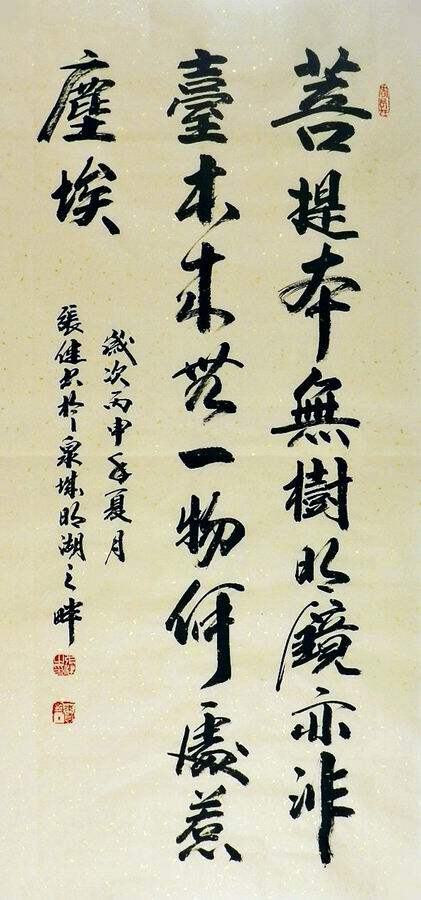 菩提本無樹明鏡亦非
臺本来無一物何處惹
塵埃
歲次丙申年夏月
張健书於泉城明湖之畔